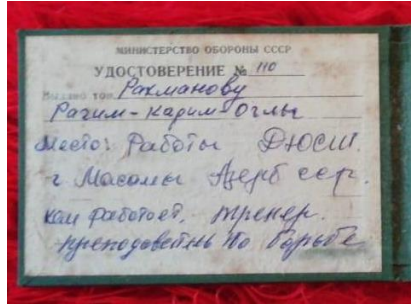 МИНИСТЕРСТВО ОБОРОНЫ СССР
УДОСТОВЕРЕНИЕ № 110
Выдано тов. Рахманову
Рагим-Карим-Оглы
Место: Работы ДЮСШ.
г Масаллы Азерб сср.
кем работает. тренер.
преподаватель по борьбе